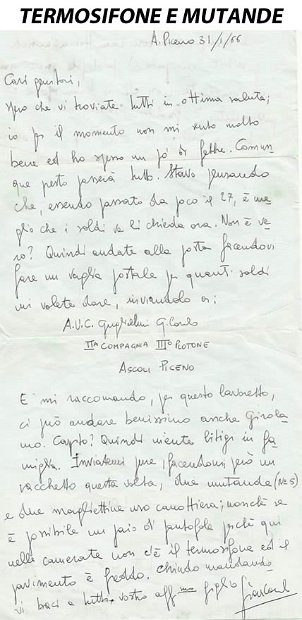 TERMOSIFONE E MUTANDE
A. Piceno 31/1/66
Cari genitori,
spero che vi troviate tutti in ottima salute;
io per il momento non mi sento molto
bene ed ho spesso un pò di febbre. Comun
que presto passerà tutto. Stavo pensando
che, essendo passato da poco il 27, è me
glio che i soldi ve li chieda ora. Non è ve
ro? Quindi andate alla posta facendovi
fare un vaglia postale per quanti soldi
mi volete dare, inviandolo a:
A.U.C. Guglielmi G.Carlo
IIª COMPAGNIA IIIº PLOTONE
ASCOLI PICENO
E mi raccomando, per questo lavoretto,
ci può andare benissimo anche Girola
mo. Capito? Quindi niente litigi in fa
miglia. Inviatemi pure, facendomi però un
pacchetto questa volta, due mutande (No 5)
e due magliettine uso canottiera; nonchè se
è possibile un paio di pantofole perchè qui
nella camerata non c'è il termosifone ed il
pavimento è freddo. Chiudo mandando
vi baci a tutti. vostro aff.mo figlio Giancarlo